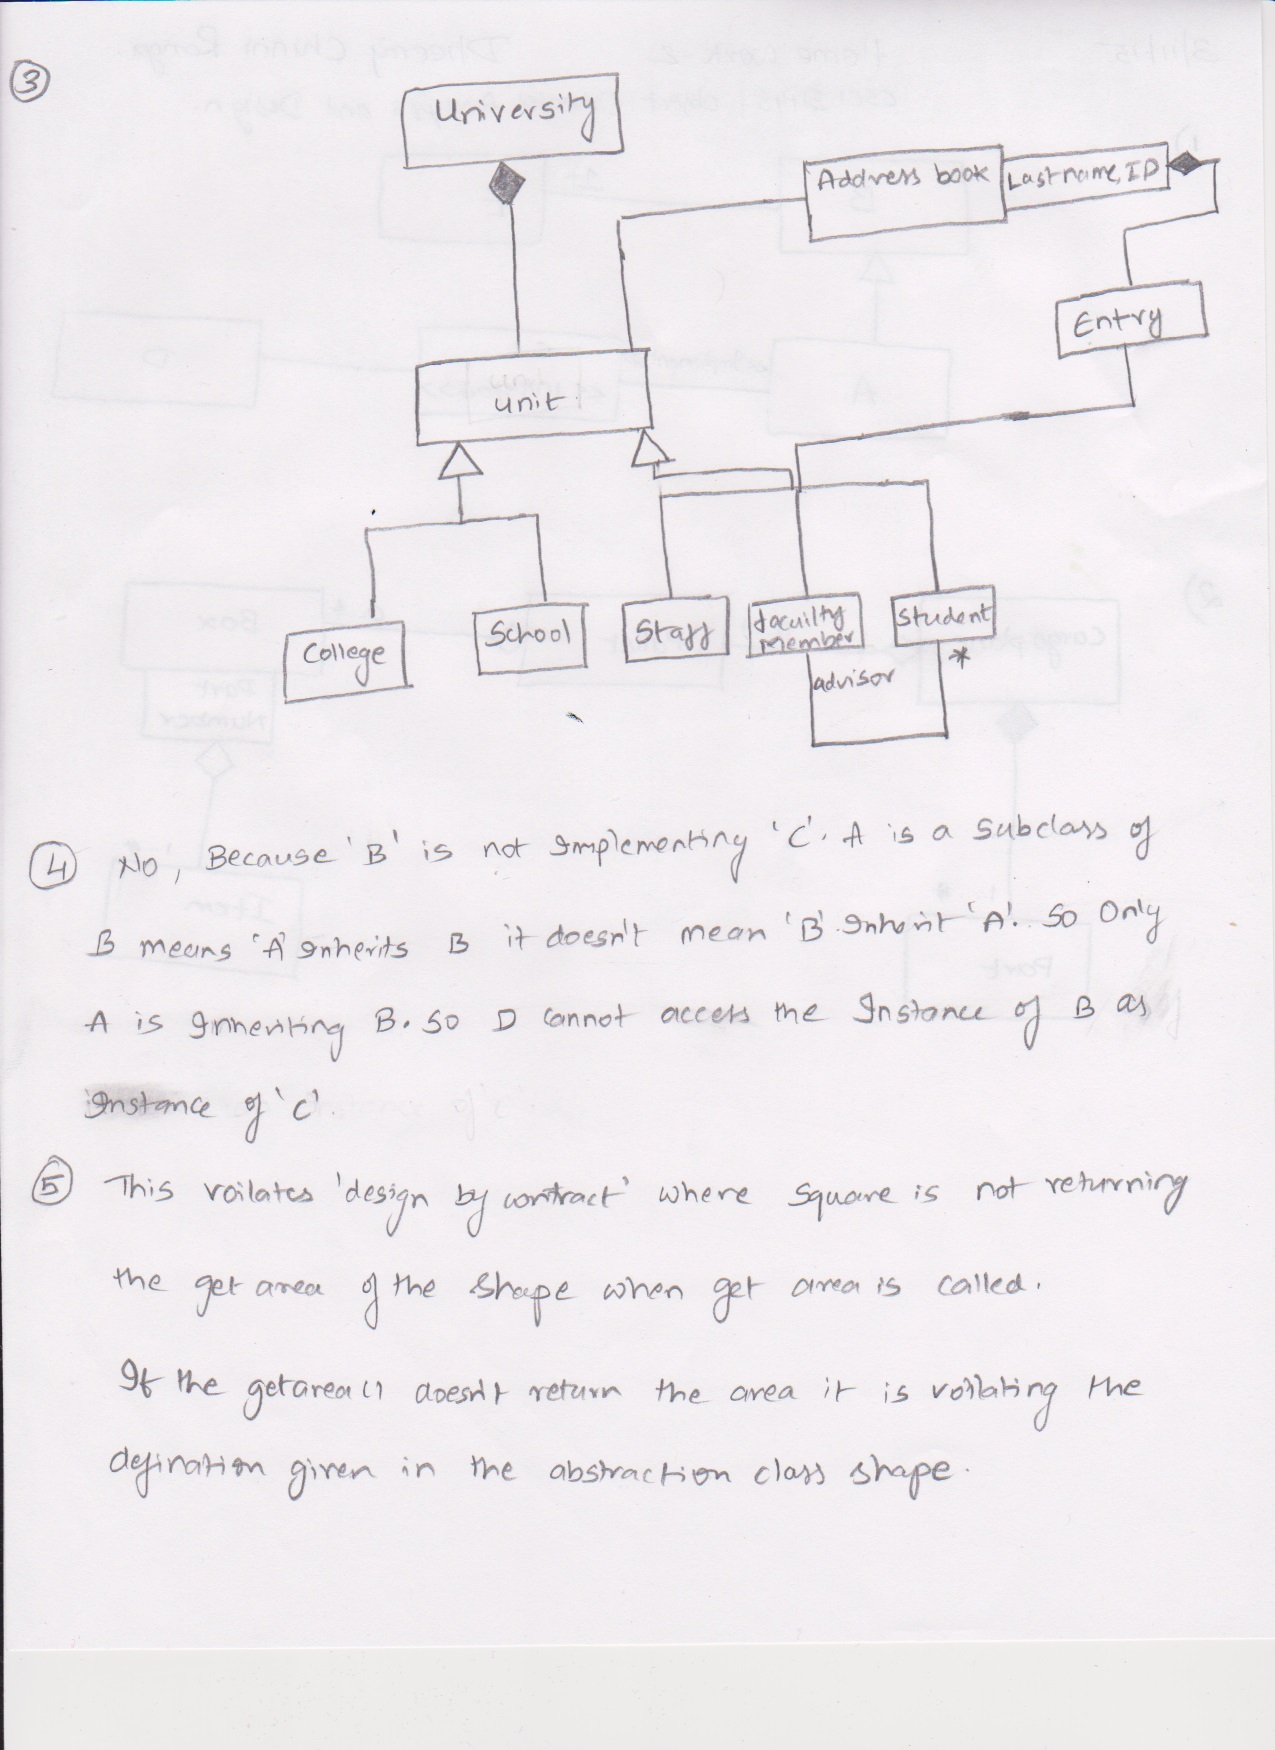 3
University
Address book
Lastname, ID
Entry
unit
College
School
Staff
facuilty
member
Student
advisor
*
4 No, Because 'B' is not Implementing 'C'. A is a Subclass of
B means 'A' Inherits B it doesn't mean 'B' Inherit 'A'. So Only
A is Inheriting B. So D Cannot access the Instance of B as
Instance of 'C'.
5 This voilates 'design by contract' where Square is not returning
the get area of the Shape when get area is called.
If the getarea() doesn't return the area it is voilating the
defination given in the abstraction class shape.